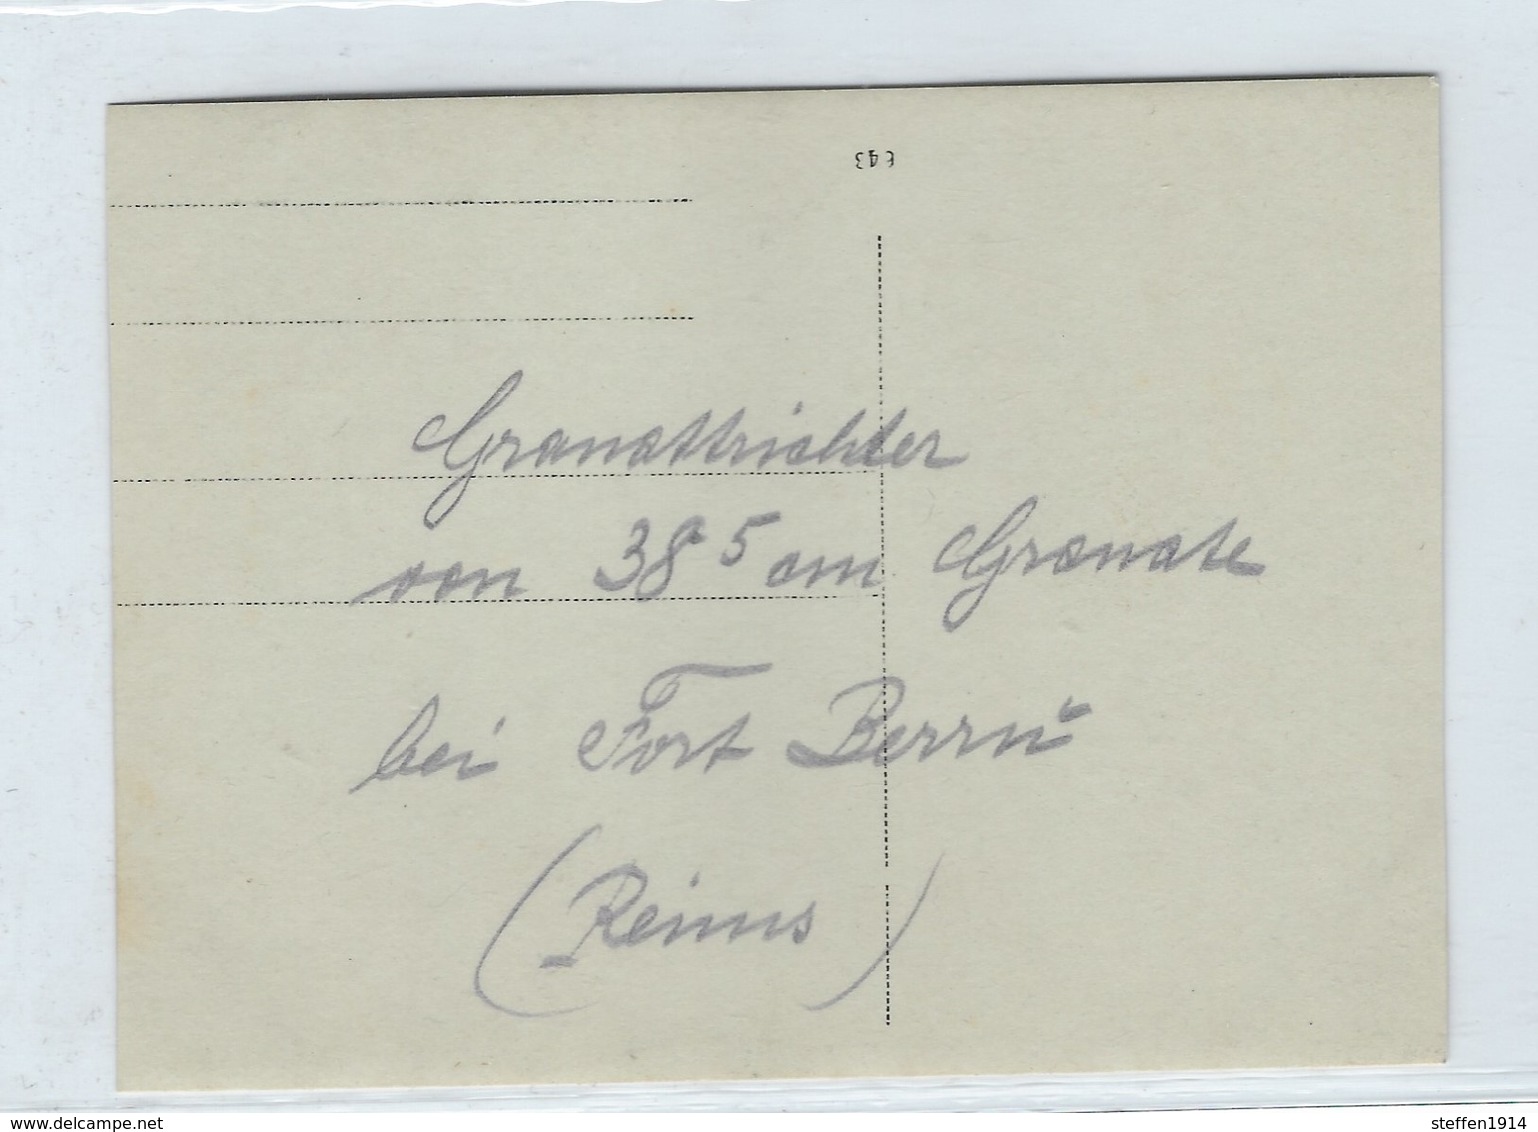 Granattrichter
von 38⁵ cm Granate
bei Fort Berru
(Reims)
www.delcampe.net
steffen1914